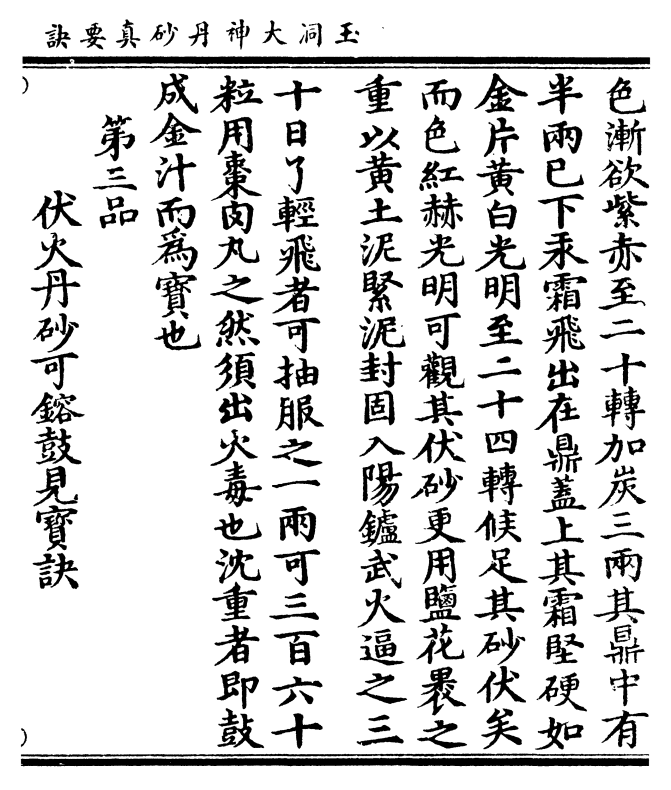 玉洞大神丹砂真要訣
色漸欲紫赤至二十轉加炭三兩其鼎中有
半兩已下汞霜飛出在鼎蓋上其霜堅硬如
金片黃白光明至二十四轉候足其砂伏矣
而色紅赫光明可觀其伏砂更用鹽花褁之
重以黃土泥緊泥封固入陽鑪武火逼之三
十日了輕飛者可抽服之一兩可三百六十
粒用棗肉丸之然須出火毒也沈重者即鼓
成金汁而爲寶也
第三品
伏火丹砂可鎔鼓見寶訣